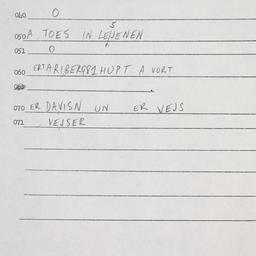 040 O
050 A TOES IN LEJENEN
051 O
060 ERTARIBERG81 HUPT A VORT
070 ER DAVISN UN ER VEJS
071 VEJSER